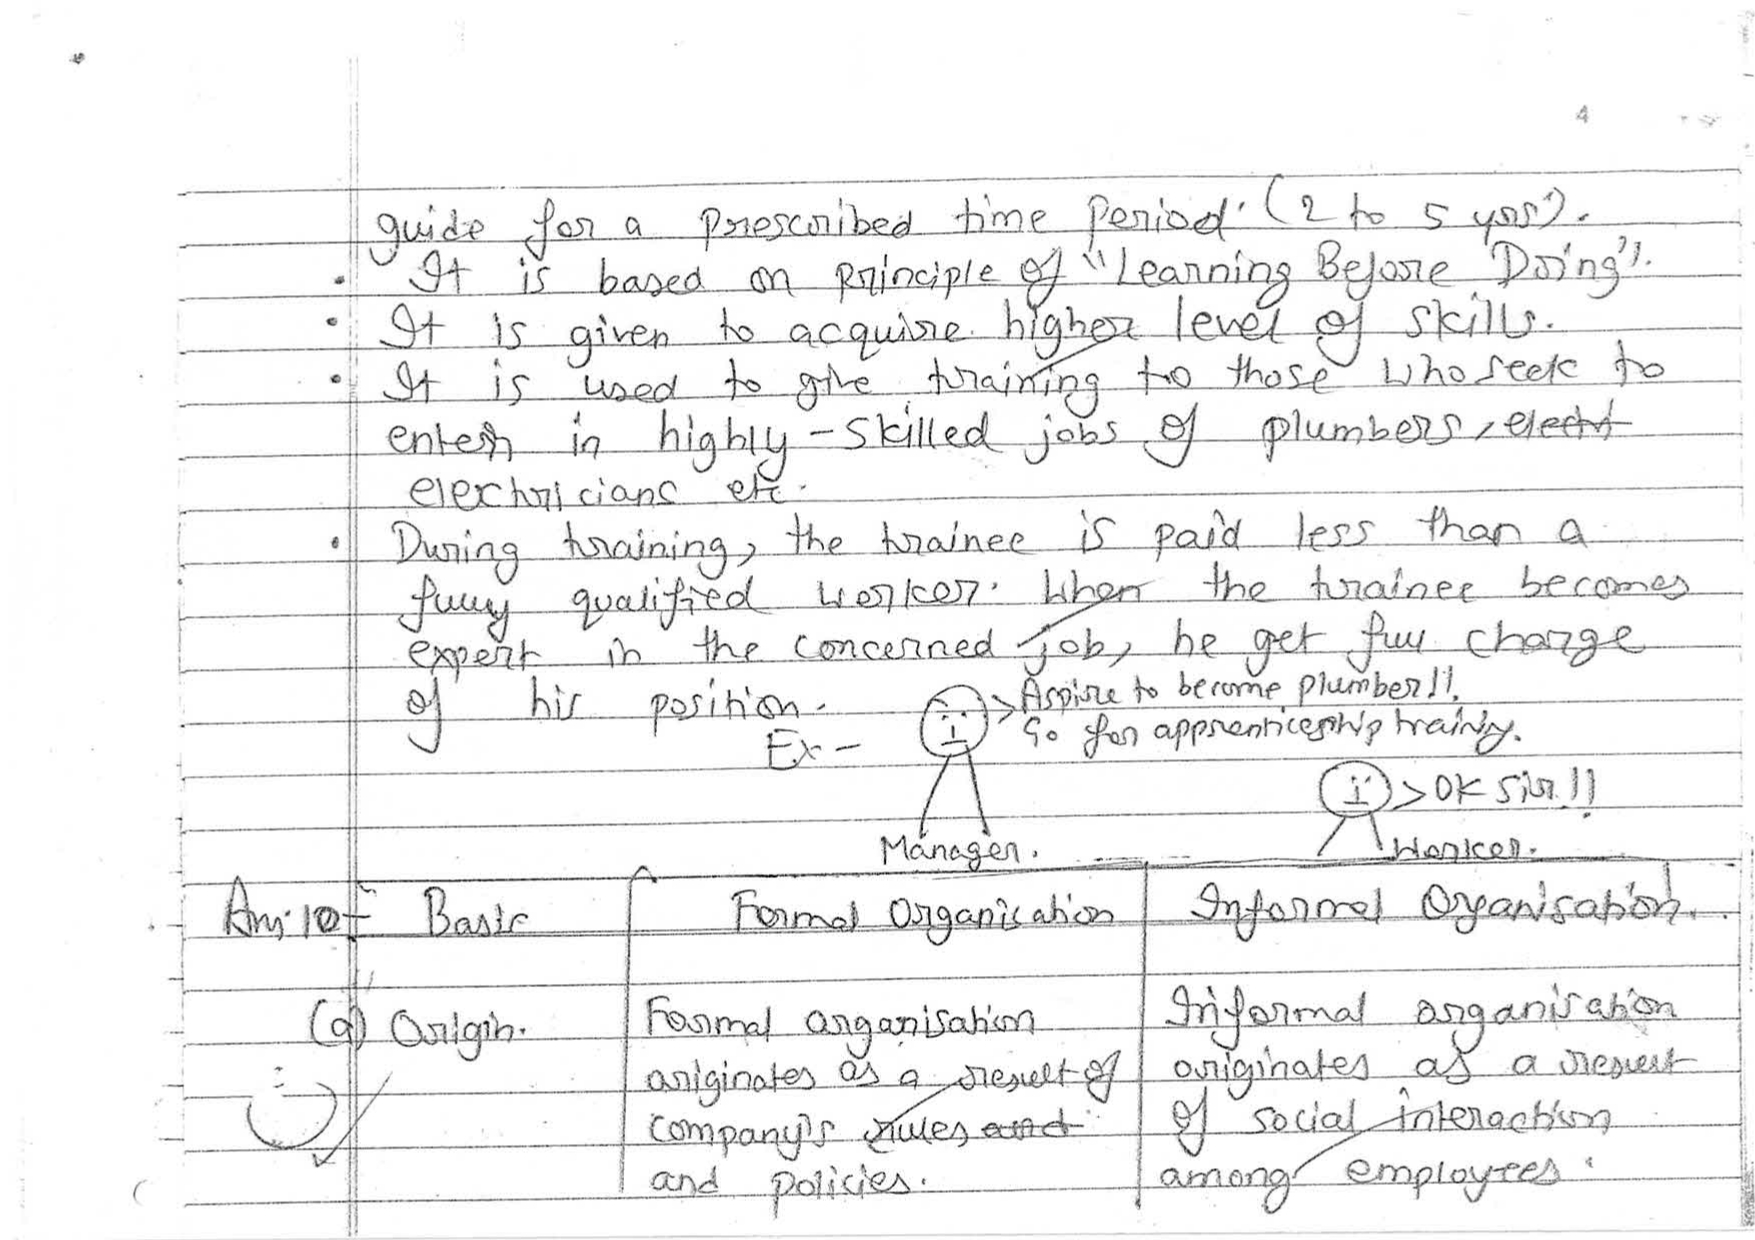 4
guide for a prescribed time period. (2 to 5 yrs).
• It is based on principle of "Learning Before Doing".
• It is given to acquire higher level of skills.
• It is used to give training to those who seek to
enter in highly-skilled jobs of plumbers, elect
electricians etc.
• During training, the trainee is paid less than a
fully qualified worker. When the trainee becomes
expert in the concerned job, he get full charge
of his position.
> Aspire to become plumber!!
Go for apprenticeship training.
Ex -
> OK Sir!!
Manager.
Worker.
Ans 10- Basic Formal Organisation Informal Organisation.
(a) Origin. Formal organisation Informal organisation
originates as a result of originates as a result
company's rules and of social interaction
and policies. among employees.